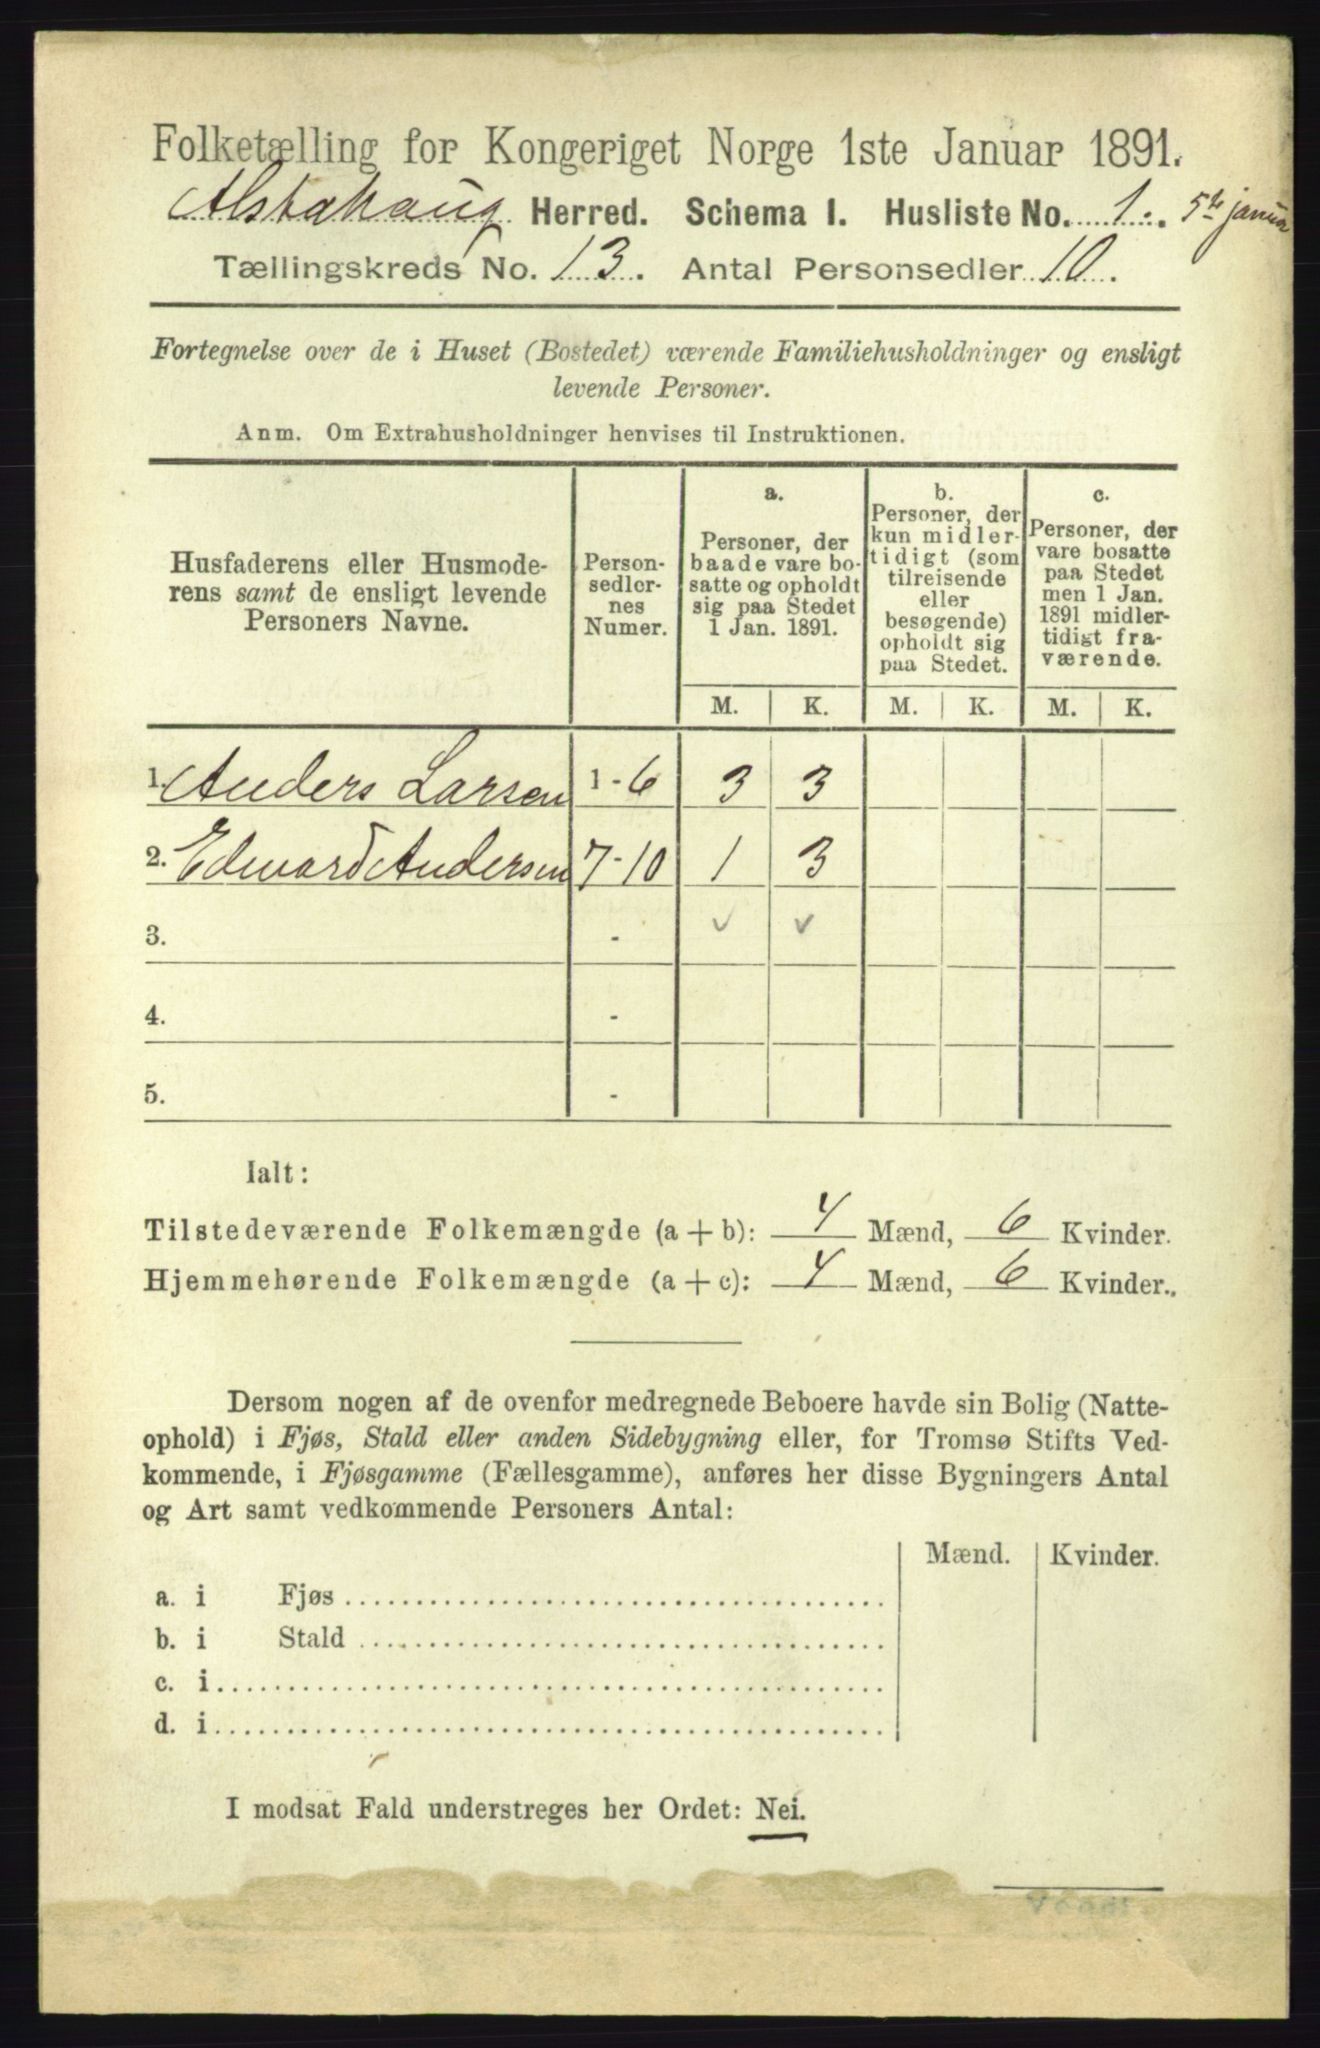 Folketælling for Kongeriget Norge 1ste Januar 1891.
Alstahaug Herred. Schema I. Husliste No. 1. 5te januar
Tællingskreds No. 13. Antal Personsedler 10.
Fortegnelse over de i Huset (Bostedet) værende Familiehusholdninger og ensligt
levende Personer.
Anm. Om Extrahusholdninger henvises til Instruktionen.
Husfaderens eller Husmode-
rens samt de ensligt levende
Personers Navne.
Person-
sedler-
nes
Numer.
a.
Personer, der
baade vare bo-
satte og opholdt
sig paa Stedet
1 Jan. 1891.
b.
Personer, der
kun midler-
tidigt (som
tilreisende
eller
besøgende)
opholdt sig
paa Stedet.
c.
Personer, der
vare bosatte
paa Stedet
men 1 Jan.
1891 midler-
tidigt fra-
værende.
M. K. M. K. M. K.
1. Anders Larsen 1-6 3 3
2. Edward Andersen 7-10 1 3
3. - ✓ ✓
4. -
5. -
Ialt:
Tilstedeværende Folkemængde (a + b): 4 Mænd, 6 Kvinder.
Hjemmehørende Folkemængde (a + c): 4 Mænd, 6 Kvinder.
Dersom nogen af de ovenfor medregnede Beboere havde sin Bolig (Natte-
ophold) i Fjøs, Stald eller anden Sidebygning eller, for Tromsø Stifts Ved-
kommende, i Fjøsgamme (Fællesgamme), anføres her disse Bygningers Antal
og Art samt vedkommende Personers Antal:
Mænd. Kvinder.
a. i Fjøs
b. i Stald
c. i
d. i
I modsat Fald understreges her Ordet: Nei.